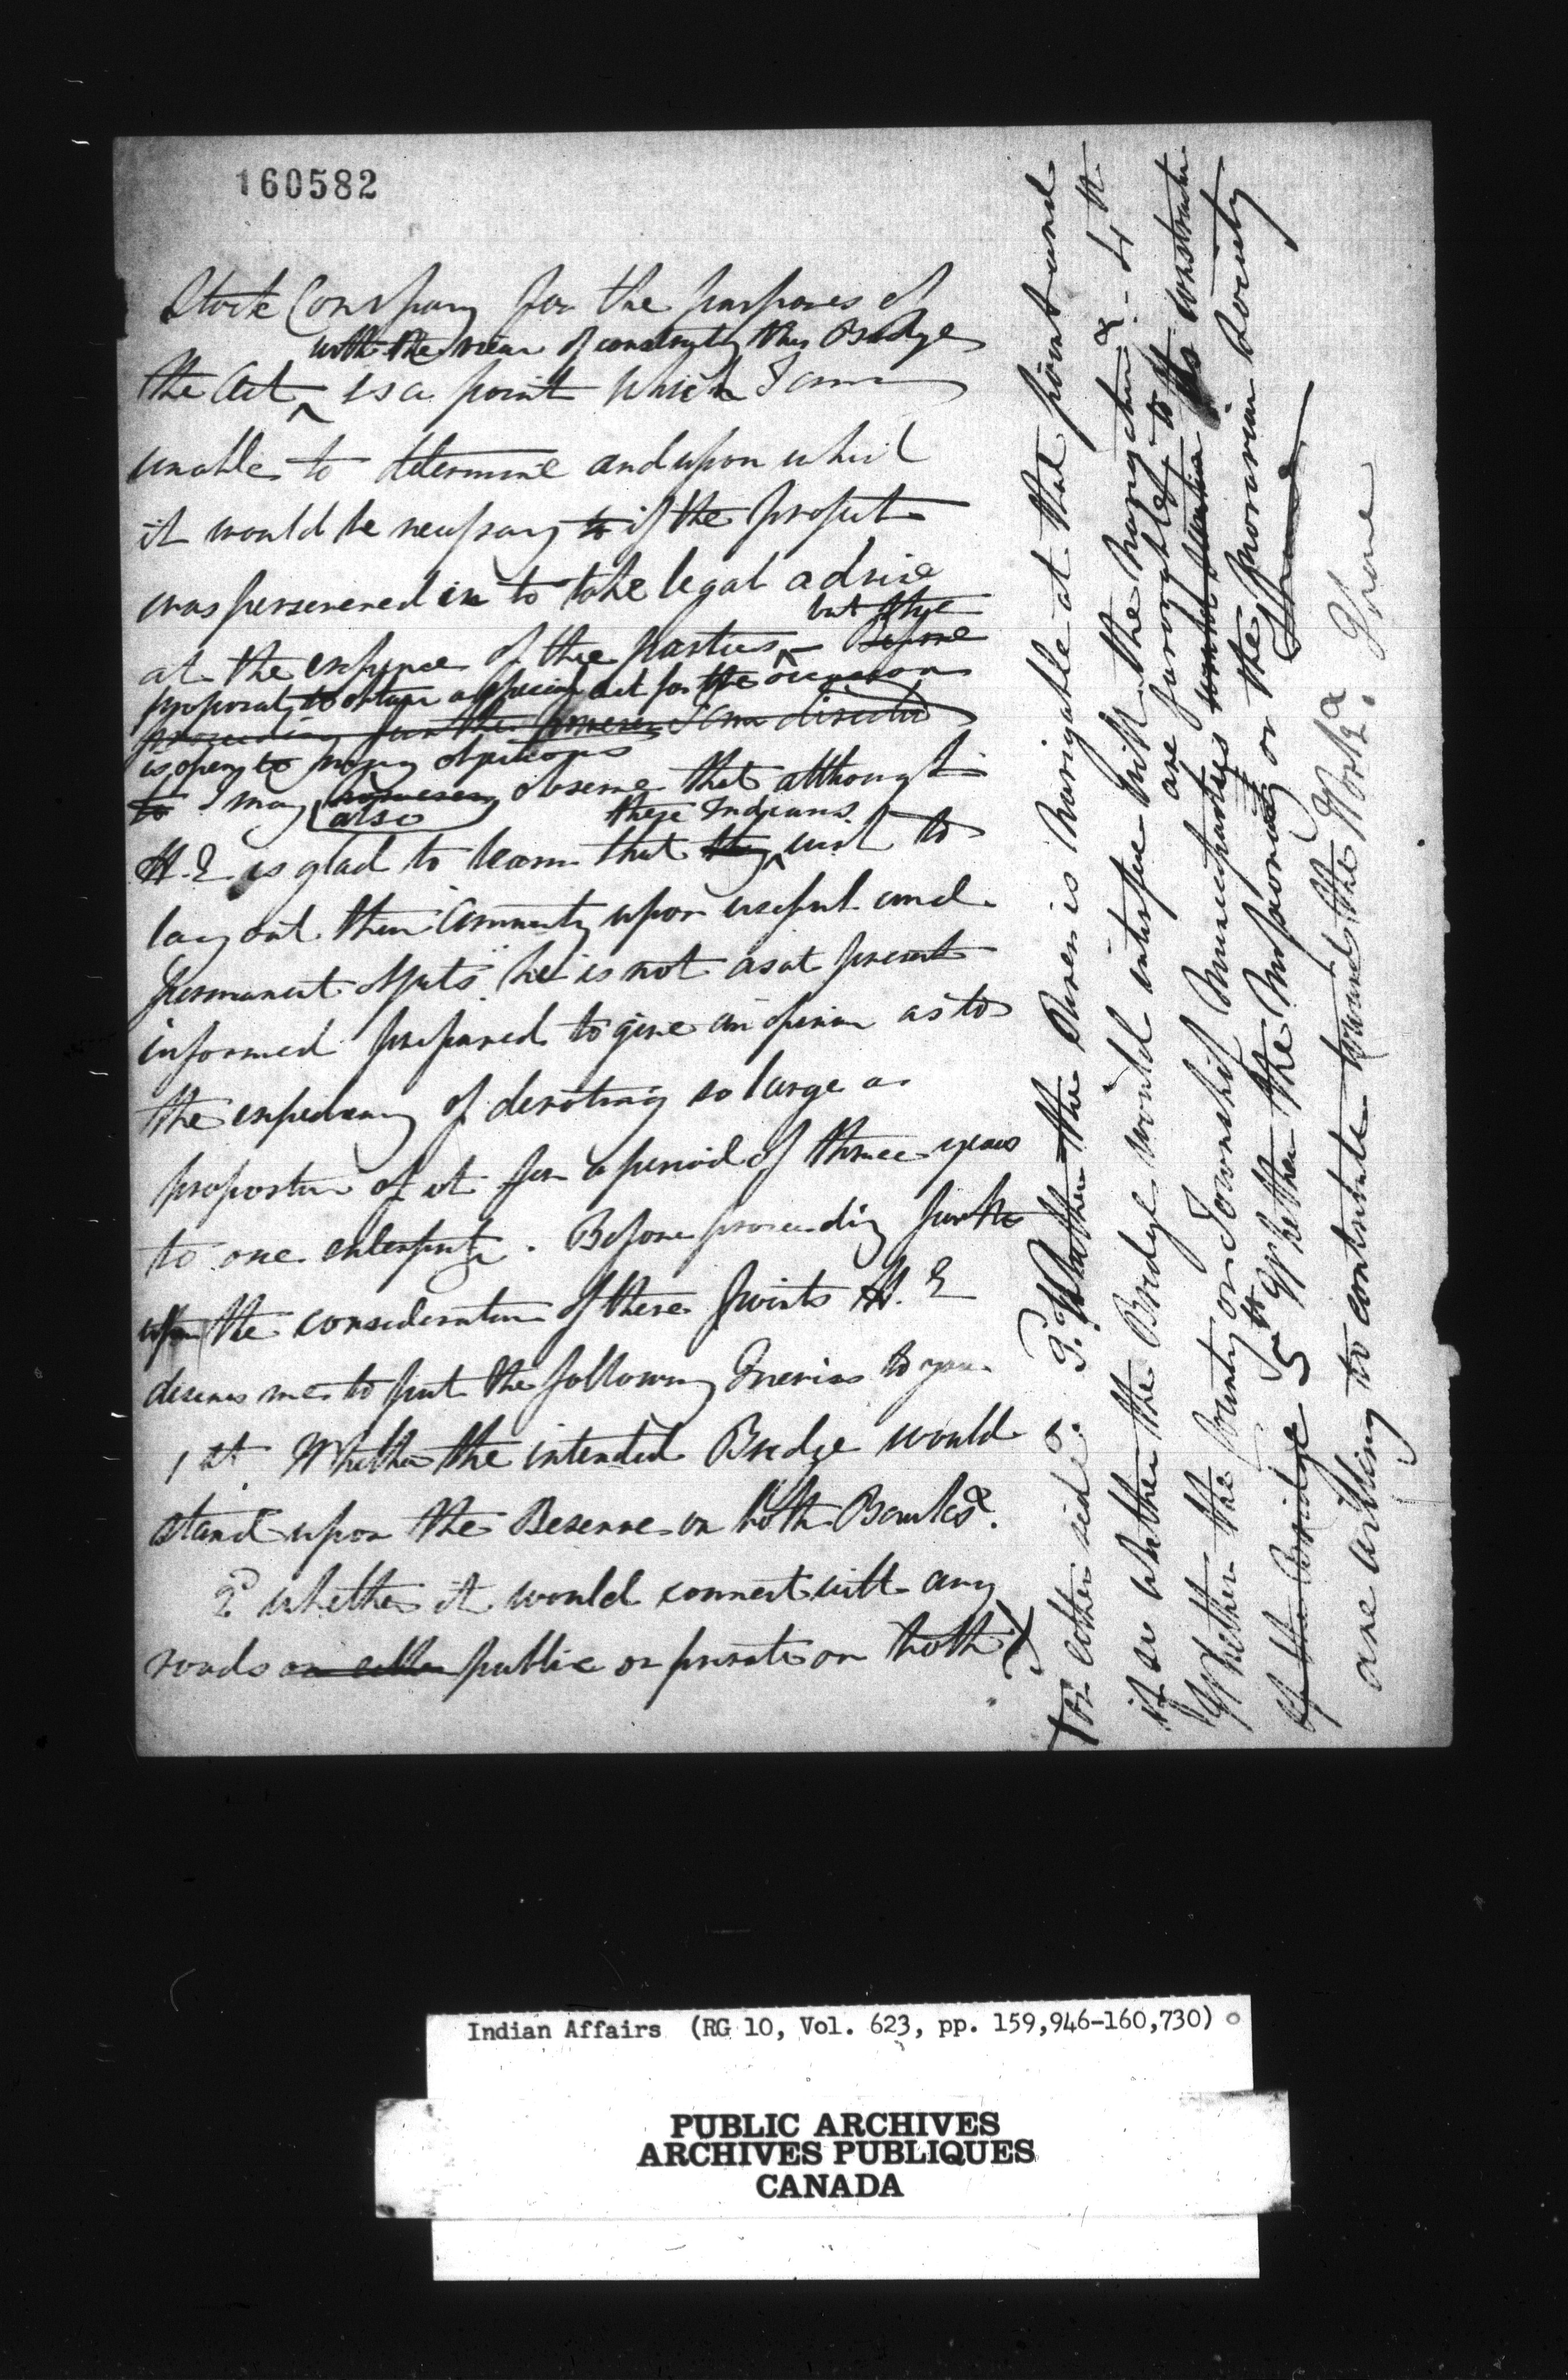 160582
Stock Company for the purposes of
with the view of constructing this Bridge
the Act is a point which I am
unable to determine and upon which
it would be necessary to if the project
was persevered in to take legal advice
but the
at the expense of the parties – Before
proposal to obtain a special act for the occasion
proceeding further I am directed
is open to many objections
to I may observe that although
also these Indians
H. E is glad to learn that they wish to
lay out their Annuity upon useful and
permanent objects he is not as at present
informed prepared to give an opinion as to
the expediency of devoting so large a
proportion of it for a period of three years
to one enterprize. Before proceeding further
upon the consideration of these points H. E
desires me to put the following Queries to you
1st. Whether the intended Bridge would
stand upon the Reserve on both Banks &.
2d whether it would connect with any
roads on either public or private on both
or either side &. 3. Whether the River is navigable at that point and
if so whether the Bridge would interfere with the navigation &. 4th
are favorable to the construction
Whether the County or Township Municipalities would
of the Bridge 5th Whether the Municipality or the Moravian Society
are willing to contribute toward the Work &. I have
Indian Affairs (RG 10, Vol. 623, pp. 159,946-160,730)
PUBLIC ARCHIVES
ARCHIVES PUBLIQUES
CANADA